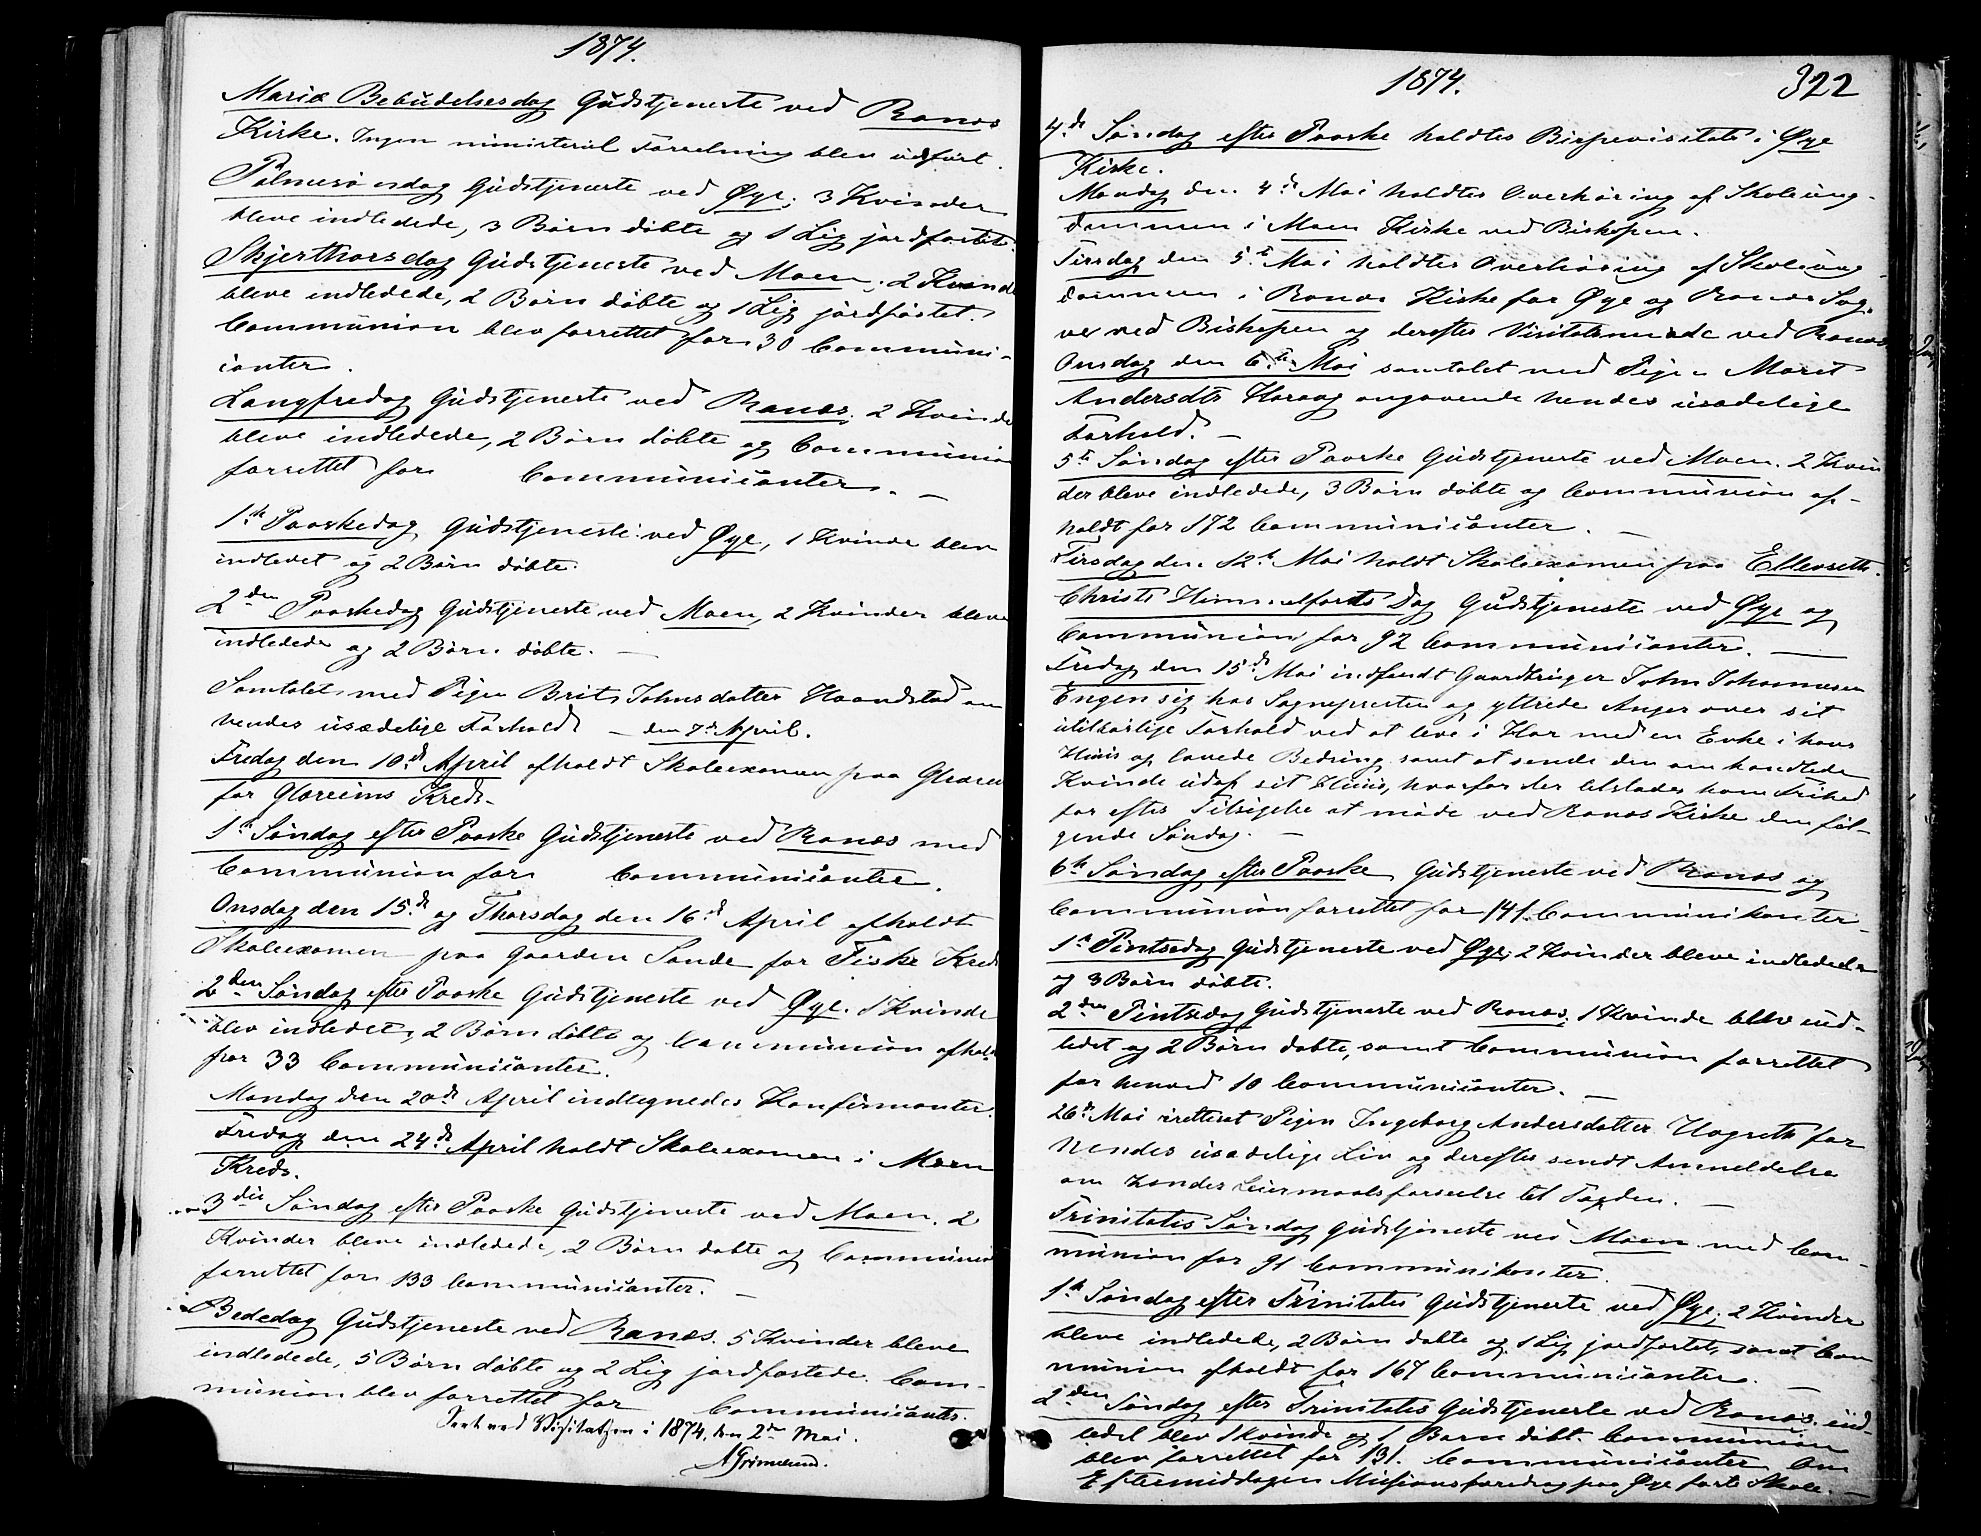 1874.
Mariæ Bebudelsesdag Gudstjeneste ved Ranæs
Kirke. Ingen ministeriel Forretning blev udført.
Palmesøndag Gudstjeneste ved Øye; 3 Kvinder
bleve indledede, 3 Børn døbte og 1 Lig jordfæstet.
Skjerthorsdag Gudstjeneste ved Moen; 2 Kvinde
bleve indledede, 2 Børn døbte og 1 Lig jordfæstet.
Communion blev forrettet for 30 Communi-
canter.
Langfredag Gudstjeneste ved Ranæs. 2 Kvinde
bleve indledede, 2 Børn døbte og Communion
forrettet for Communicanter. —
1ste Paaskedag Gudstjeneste ved Øye, 1 Kvinde blev
indledet og 2 Børn døbte.
2den Paaskedag Gudstjeneste ved Moen, 2 Kvinder bleve
indledede og 2 Børn døbte. —
Samtalet med Pigen Brit Johnsdatter Haandstad om
hendes usædelige Forhold — den 7de April.
Fredag den 10de April afholdt Skoleexamen paa
for Glæreims Kreds.
1ste Søndag efter Paaske Gudstjeneste ved Ranæs med
Communion for Communicanter.
Onsdag den 15de og Thorsdag den 16de April afholdt
Skoleexamen paa Gaarden Sande for Fiske Kreds
2den Søndag efter Paaske Gudstjeneste ved Øye. 1 Kvinde
blev indledet, 2 Børn døbte og Communion afholdt
for 33 Communicanter.
Mandag den 20de April indtegnedes Konfirmanter.
Fredag den 24de April holdt Skoleexamen i Moen
Kreds.
3die Søndag efter Paaske Gudstjeneste ved Moen. 2
Kvinder bleve indledede, 2 Børn døbte og Communion
forrettet for 133 Communicanter. —
Bededag Gudstjeneste ved Ranæs. 5 Kvinder bleve
indledede, 5 Børn døbte og 2 Lig jordfæstede. Com-
munion blev forrettet for Communicanter.
Seet ved Visitatsen i 1874, den 2den Mai.
AGrimelund.
1874.
322
4de Søndag efter Paaske holdtes Bispevisitats i Øye
Kirke.
Mandag den 4de Mai holdtes Overhøring af Skoleung-
dommen i Moen Kirke ved Biskopen.
Tirsdag den 5te Mai holdtes Overhøring af Skoleung-
dommen i Ranæs Kirke for Øye og Ranæs Sog-
ne ved Biskopen og derefter Visitatsmøde ved Ranæs
Onsdag den 6te Mai samtalet med Pigen Marit
Andersdtr angaaende hendes usædelige
Forhold. —
5te Søndag efter Paaske Gudstjeneste ved Moen. 2 Kvin
der bleve indledede, 3 Børn døbte og Communion af-
holdt for 172 Communicanter. —
Tirsdag den 12te Mai holdt Skoleexamen paa Ellevseth.
Christi Himmelfarts Dag Gudstjeneste ved Øye og
Communion for 92 Communicanter. —
Fredag den 15de Mai indfandt Gaardbruger John Johannesen
Engen sig hos Sognepresten og yttrede Anger over sit
utilbørlige Forhold ved at leve i Hor med en Enke i hans
Huus og lovede Bedring samt at sende den omhandlede
Kvinde udaf sit Huus, hvorfor der tilstodes ham Frihed
for efter Tilsigelse at møde ved Ranæs Kirke den føl-
gende Søndag. —
6te Søndag efter Paaske Gudstjeneste ved Ranæs og
Communion forrettet for 141 Communikanter.
1ste Pintsedag Gudstjeneste ved Øye; 2 Kvinder bleve indledede
og 3 Børn døbte.
2den Pintsedag Gudstjeneste ved Ranæs; 1 Kvinde blev ind-
ledet og 2 Børn døbte, samt Communion forrettet
for henved 10 Communicanter. —
26de Mai irettesat Pigen Ingeborg Andersdatter for
hendes usædelige Liv og derefter sendt Anmeldelse
om hendes Leiermaalsforseelse til Fogden. —
Trinitatis Søndag Gudstjeneste ved Moen med Com-
munion for 91 Communikanter.
1ste Søndag efter Trinitatis Gudstjeneste ved Øye; 2 Kvinder
bleve indledede, 2 Børn døbte og 1 Lig jordfæstet, samt Com
munion afholdt for 167 Communicanter. —
2den Søndag efter Trinitatis Gudstjeneste ved Ranæs. ind-
ledet blev 1 Kvinde og 1 Barn døbt. Communion
blev forrettet for 131 Communicanter. Om
Eftermiddagen Missionsforedrag paa Øye faste Skole. —